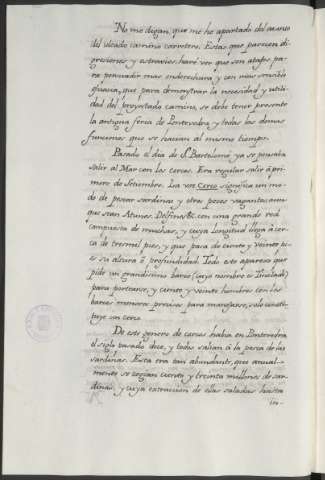 No me digan, que me he apartado del asunto
del ideado camino carretero. Estas que parecen di-
gresiones y estravios haré ver que son atajos pa-
ra persuadir mas
que para demonstrar la necesidad y utili-
dad del proyectado camino, se debe tener presente
la antigua feria de Pontevedra y todas las demas
funciones que se hacian al mismo tiempo.
Pasado el dia de Sn. Bartolomé ya se pensaba
salir al Mar con los cercos. Era regular salir á pri-
mero de Setiembre. La voz Cerco significa un mo-
do de pescar sardinas y otros peces vagantes aun-
que sean Atunes, Delfines &c. con una grande red
compuesta de muchas, y cuya longitud llega acer-
ca de tres mil pies, y que pasa de ciento y veinte pi-
es su altura ó profundidad. Todo este aparejo que
pide un grandisimo barco (cuyo nombre es
para portearse, y ciento y veinte hombres con los
barcos menores precisos para manejarse, solo consti-
tuye un cerco.
De este genero de cercos habia en Pontevedra
el siglo pasado doce, y todos salian á la pesca de las
sardinas. Esta era tan abundante, que anual-
mente se cogian ciento y treinta millones de sar-
dinas, y cuya extraccion de ellas saladas hasta